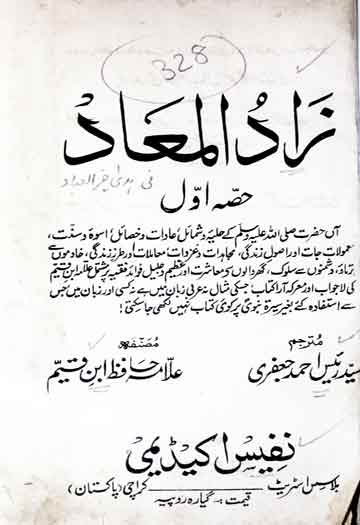 328
زادُ المعاد
فی ہدی خیر العباد
حصّہ اوّل
آں حضرت صلی اللہ علیہ وسلم کے حلیہ و شمائل، عادات و خصائل، اسوۂ و سنّت،
معمولات حیات اور اصول زندگی، مجاہدات و غزوات، معاملات اور طرز زندگی، خادموں سے
برتاؤ، دشمنوں سے سلوک، گھر والوں سے معاشرت اور عظیم و جلیل فوائد فقہیہ پر مشتمل علامہ ابن قیم
کی لاجواب اور معرکہ آرا کتاب، جسکی مثال نہ عربی زبان میں ہے نہ کسی اور زبان میں جس
سے استفادہ کئے بغیر سیرۃ نبوی پر کوئی کتاب نہیں لکھی جا سکتی!
مصنفہ
علّامہ حافظ ابن قیّم
مترجم
سیّد رئیس احمد جعفری
نفیس اکیڈیمی
بلاسس اسٹریٹ کراچی (پاکستان)
قیمت :۔ گیارہ روپیہ